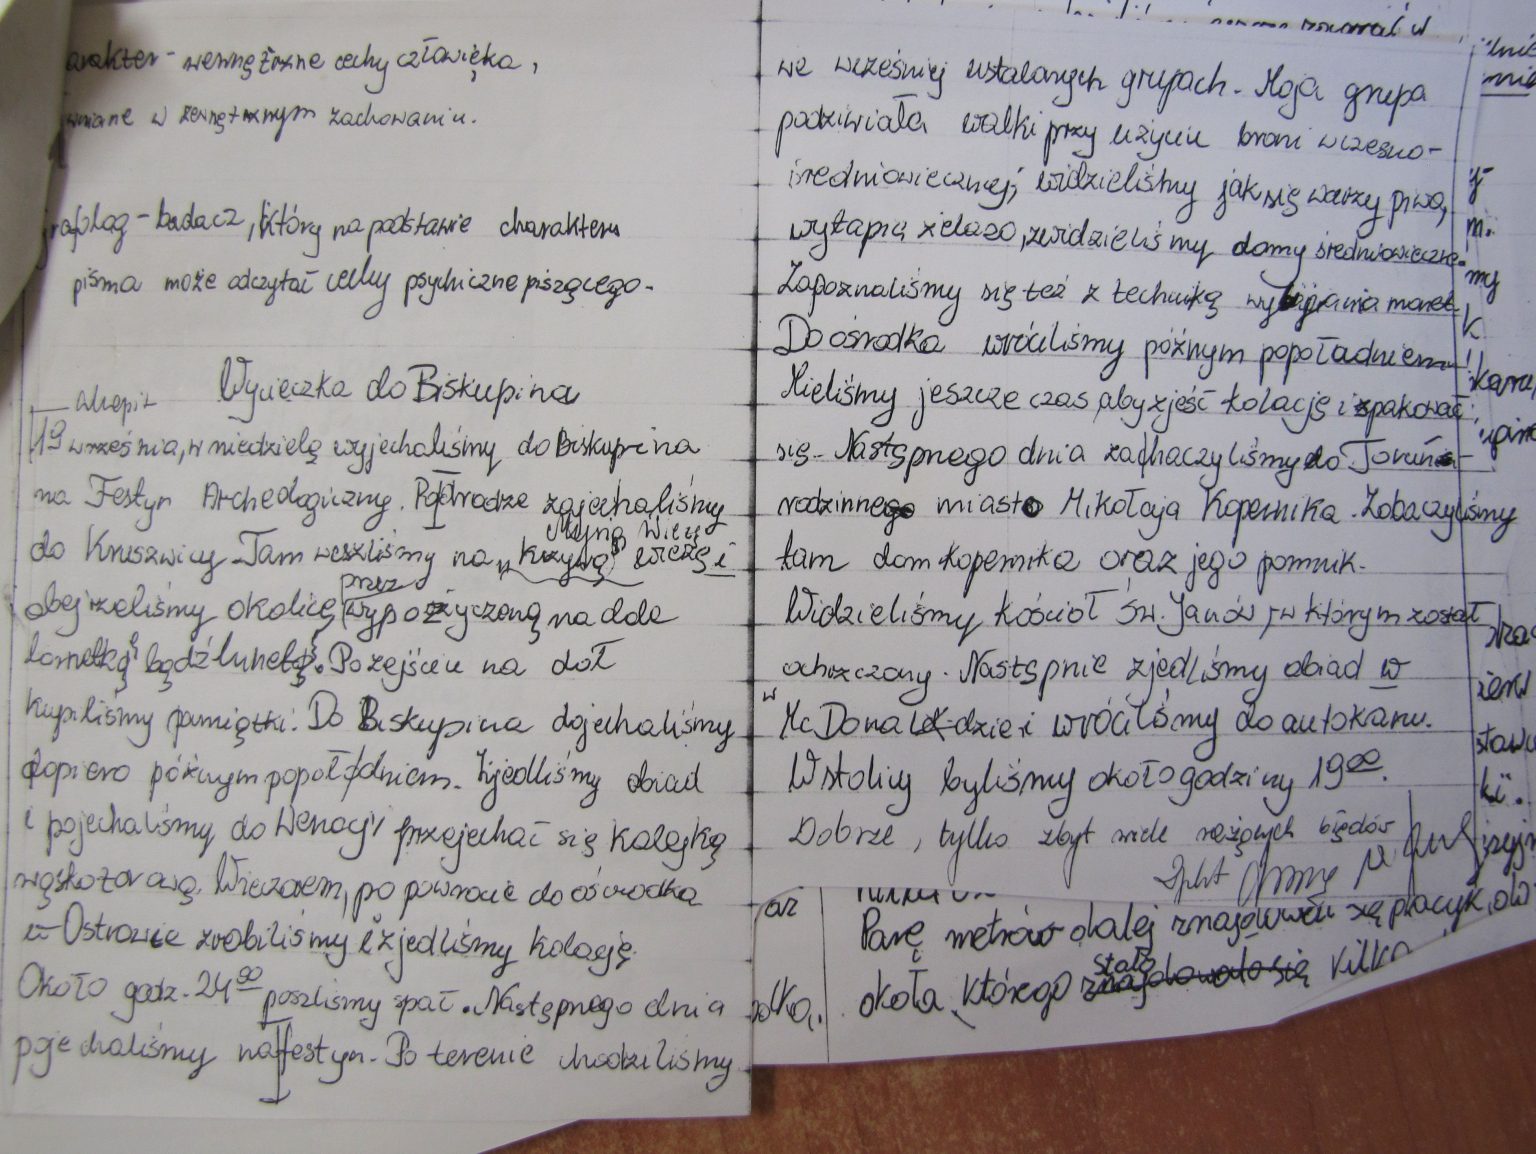 arakter - wewnętrzne cechy człowieka,
w zewnętrznym zachowaniu.
grafolog - badacz, który na podstawie charakteru
pisma może odczytać cechy psychiczne piszącego.
Wycieczka do Biskupina
akapit
19 września, w niedzielę wyjechaliśmy do Biskupina
na Festyn Archeologiczny. Po drodze zajechaliśmy
Mysią Wieżę
do Kruszwicy. Tam weszliśmy na „krzywą" wieżę i
przez
obejrzeliśmy okolicę wypożyczoną na dole
lornetką bądź lunetą. Po zejściu na dół
kupiliśmy pamiątki. Do Biskupina dojechaliśmy
dopiero późnym popołudniem. Zjedliśmy obiad
i pojechaliśmy do Wenecji przejechać się kolejką
wąskotorową. Wieczorem, po powrocie do ośrodka
w Ostrowie zrobiliśmy i zjedliśmy kolację.
Około godz. 24 00 poszliśmy spać. Następnego dnia
pojechaliśmy na festyn. Po terenie chodziliśmy
we wcześniej ustalonych grupach. Moja grupa
podziwiała walki przy użyciu broni wczesno-
średniowiecznej, widzieliśmy jak się warzy piwo,
wytapia żelazo, zwidzieliśmy domy średniowieczne.
Zapoznaliśmy się też z techniką wybijania monet.
Do ośrodka wróciliśmy późnym popoładniem
Mieliśmy jeszcze czas aby zjeść kolację i spakować
się. Następnego dnia zachaczyliśmy do Torunia-
rodzinnego miasto Mikołaja Kopernika. Zobaczyliśmy
tam dom Kopernika oraz jego pomnik.
Widzieliśmy kościół św. Janów, w którym został
ochrzczony. Następnie zjedliśmy obiad w
w Mc Donald-dzie i wróciliśmy do autokaru.
W stolicy byliśmy około godziny 19 00.
Dobrze, tylko zbyt wiele rażących błędów
Parę metrów dalej znajdował się placyk,
stało
około którego znajdowało się kilka